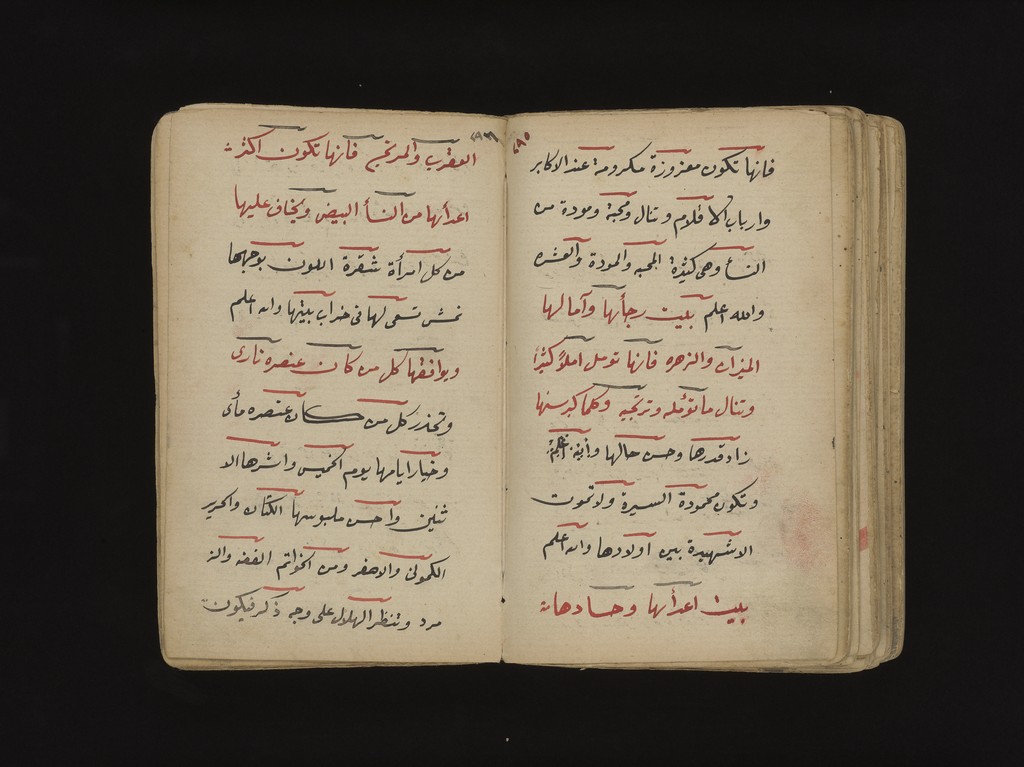 ٢٩٥
فانها تكون معزوزة مكرومة عند الاكابر
وارباب الاقلام وتنال ومحبة ومودة من
النسأ وهى كثيرة المحبه والمودة والعشره
والله اعلم بيت رجأئها وآمالها
الميزان والزهره فانها تومل املاً كثيرًا
وتنال ماتؤمله وترتجيه وكلما كبر سنها
زاد قدرها وحسن حالها والله اعلم
وتكون محمودة السيرة ولا تموت
الا شهيدة بين اولادها والله اعلم
بيت اعدأئها وحسادها
٢٩٦
العقرب والمريخ فانها تكون اكثر
اعدأئها من النسأ البيض ويخاف عليها
من كل امرأة شقرة اللون بوجهها
نمش تسعى لها فى خراب بيتها والله اعلم
ويوافقها كل من كان عنصره نارى
وتحذر كل من كان عنصره مأى
وخيار ايامها يوم الخميس واشرها الا
ثنين واحسن ملبوسها الكتان والحرير
الكمونى والاصفر ومن الخواتم الفضه والز
مرد وتنظر الهلال على وجه ذكر فيكون